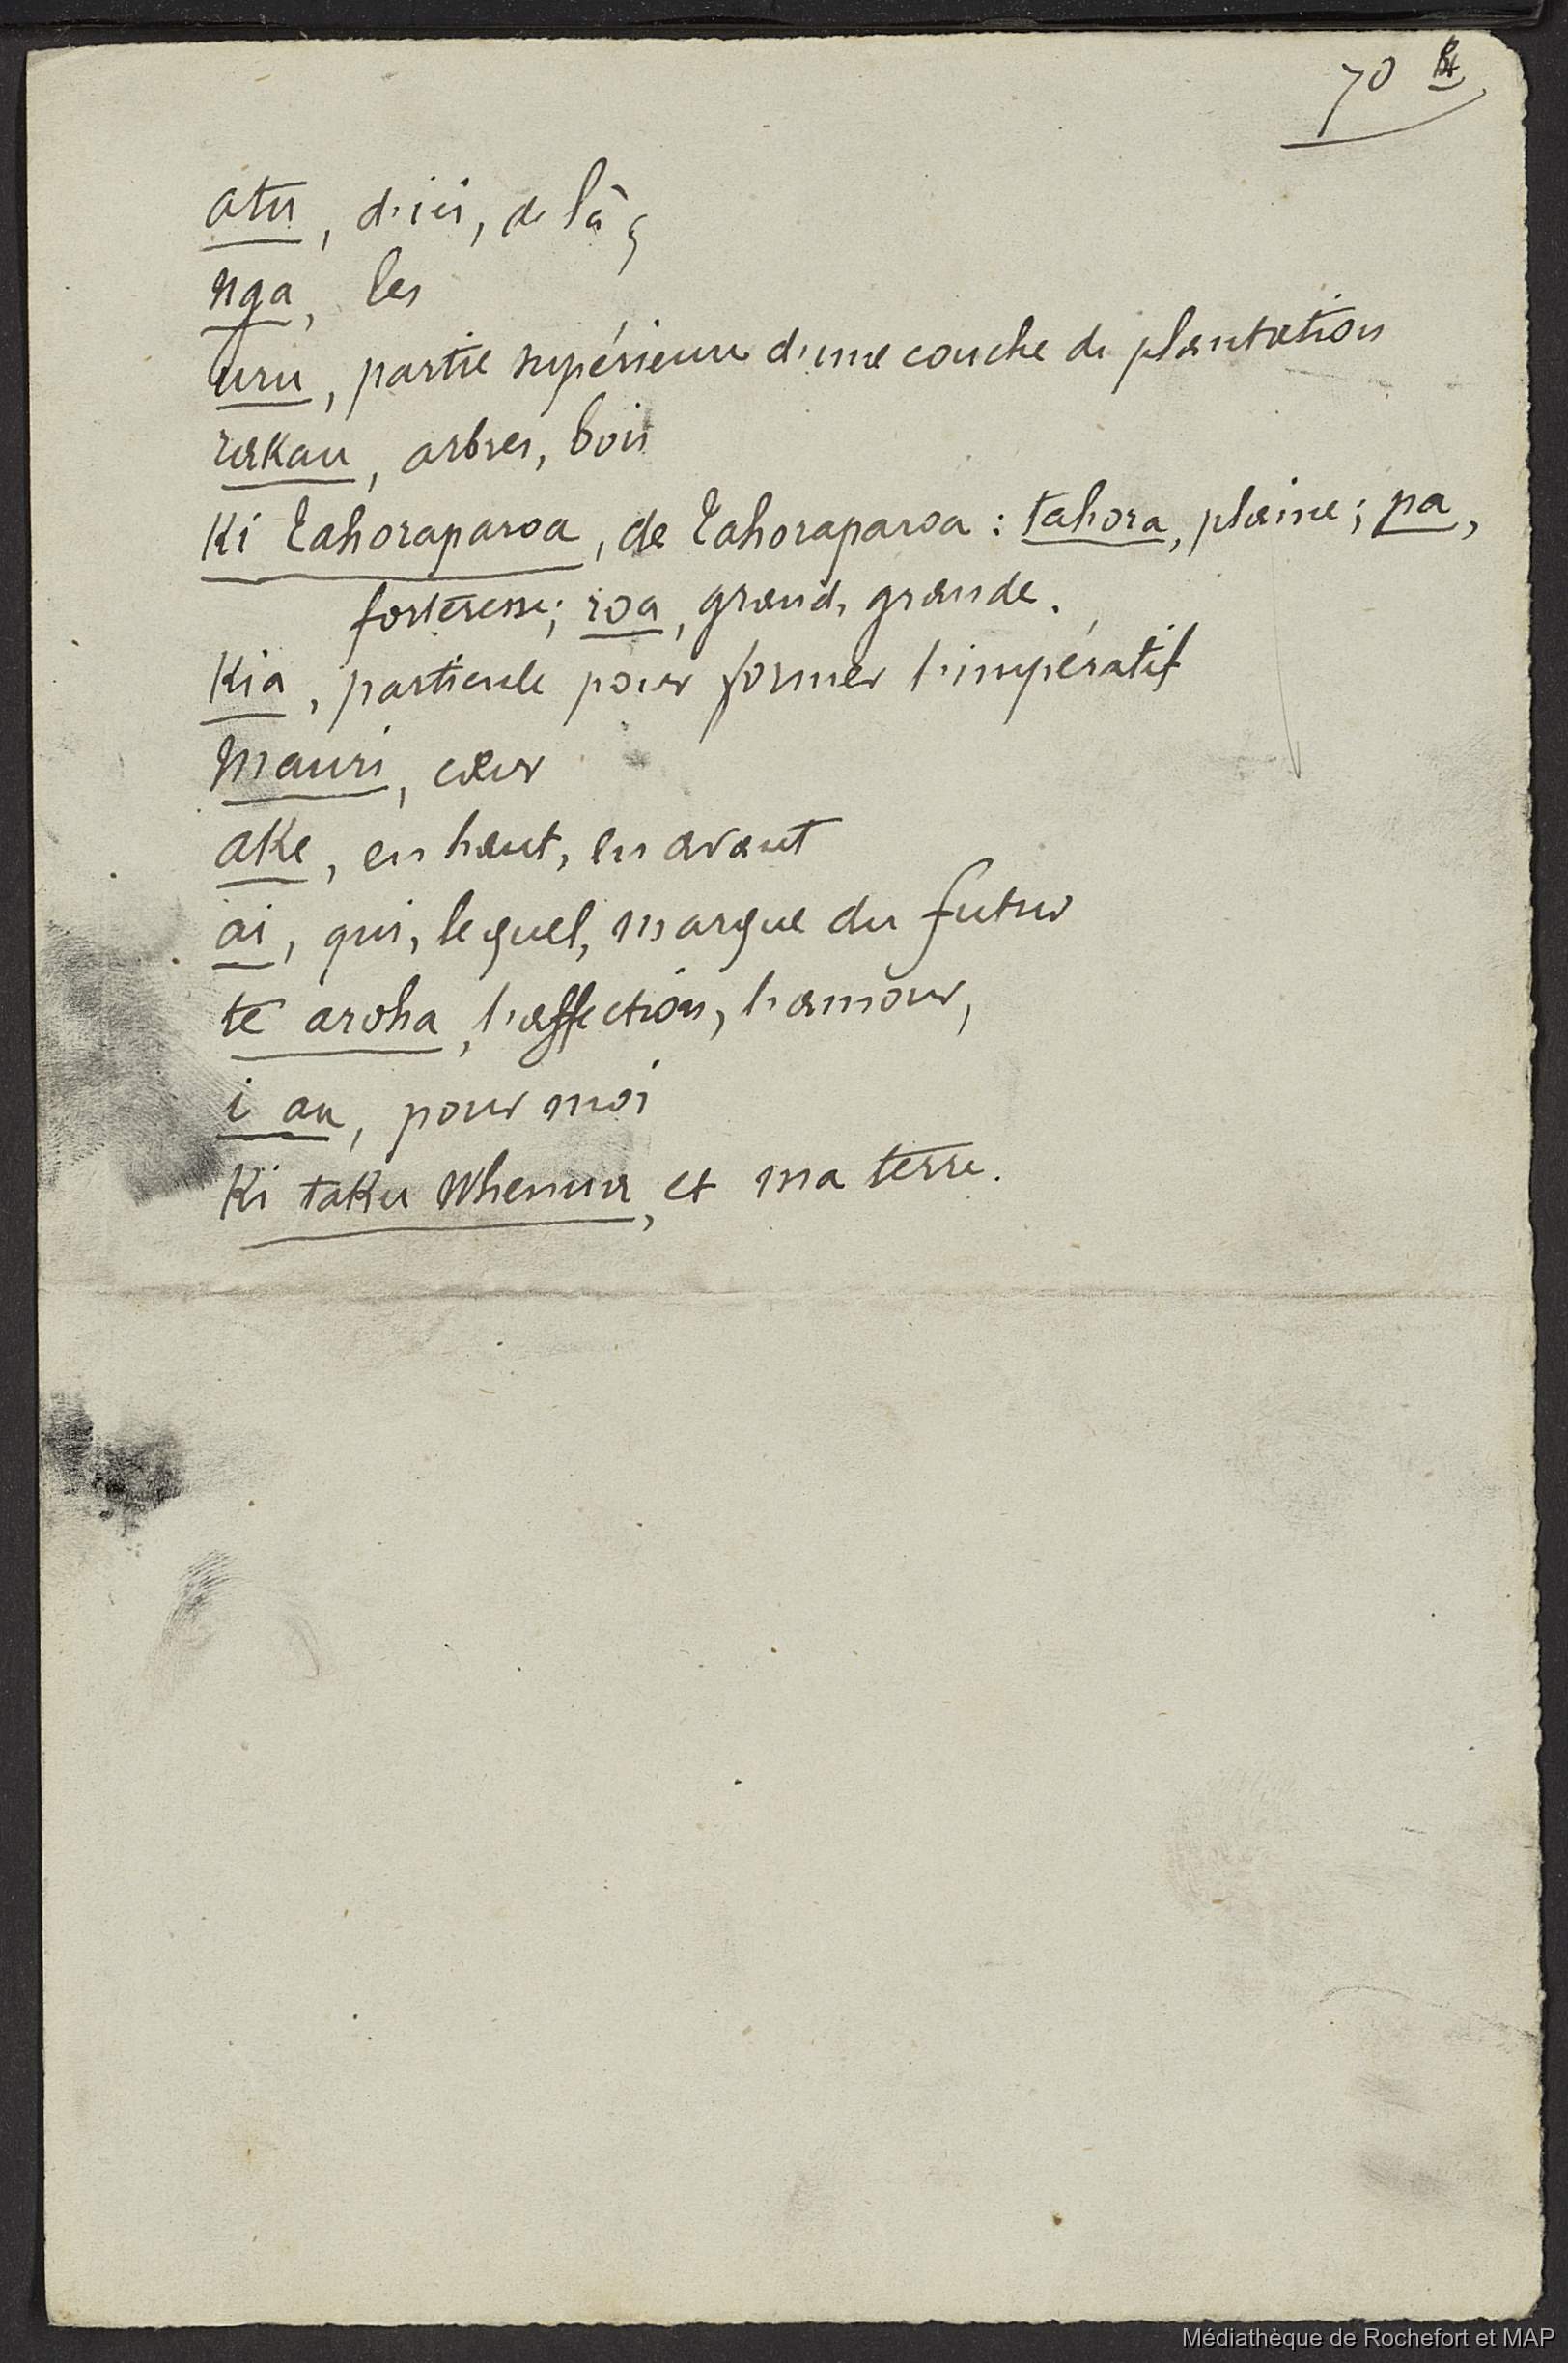 70
atu, d'ici, de là,
nga, les
uru, partie supérieure d'une couche de plantation
rakau, arbres, bois
Ki Tahoraparoa, de Tahoraparoa : tahora, plaine ; pa,
forteresse ; roa, grand, grande.
Kia, particule pour former l'impératif
Mauri, cœur
ake, en haut, en avant
ai, qui, lequel, marque du futur
te aroha, l'affection, l'amour,
i au, pour moi
Ki taku Whenua, et ma terre.
Médiathèque de Rochefort et MAP